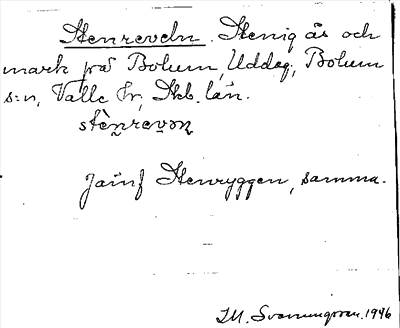 Stenreveln. Stenig ås och
mark på Bolum, Uddag, Bolum
s:n, Valle hr, Skb. län.
stènrevən
Jämf Stenryggen, samma.
I.M. Svanungsson. 1946